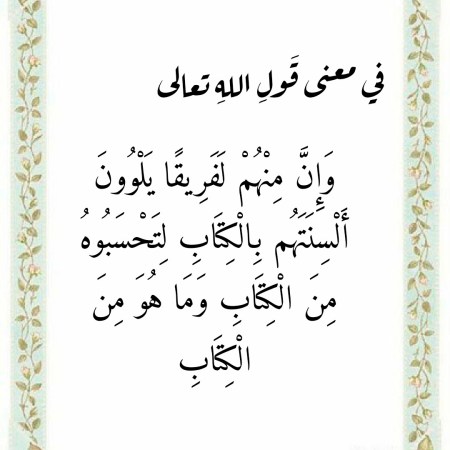 في معنى قَولِ اللهِ تعالى
وَإِنَّ مِنْهُمْ لَفَرِيقًا يَلْوُونَ
أَلْسِنَتَهُم بِالْكِتَابِ لِتَحْسَبُوهُ
مِنَ الْكِتَابِ وَمَا هُوَ مِنَ
الْكِتَابِ